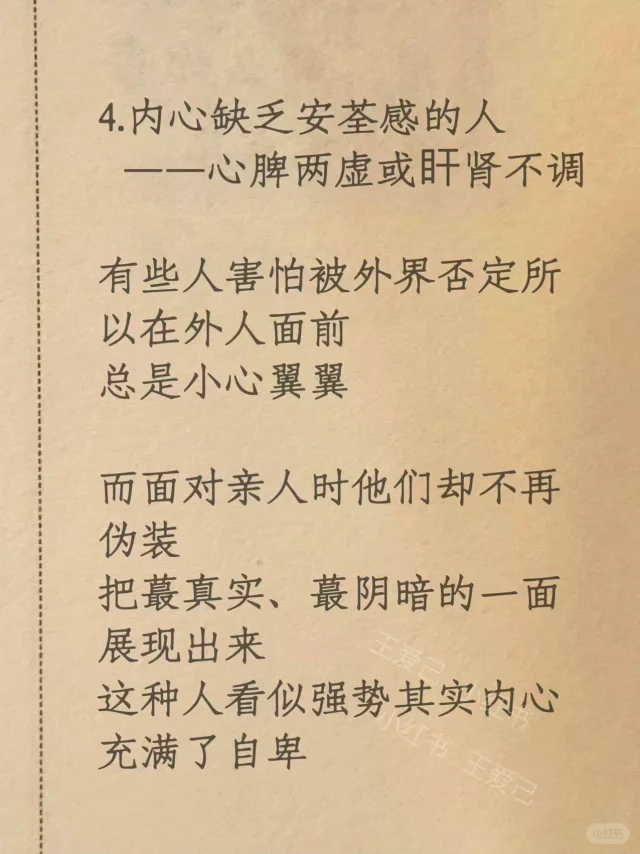 4.内心缺乏安荃感的人
——心脾两虚或盰肾不调
有些人害怕被外界否定所
以在外人面前
总是小心翼翼
而面对亲人时他们却不再
伪装
把蕞真实、蕞阴暗的一面
展现出来
这种人看似强势其实内心
充满了自卑
王爱己 小红书
小红书 王爱己
小红书